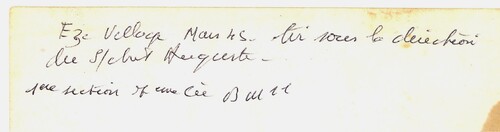 Eze Village Mars 45 - tir sous la direction
du S/chef Auguste -
1ère section 7 BM 11